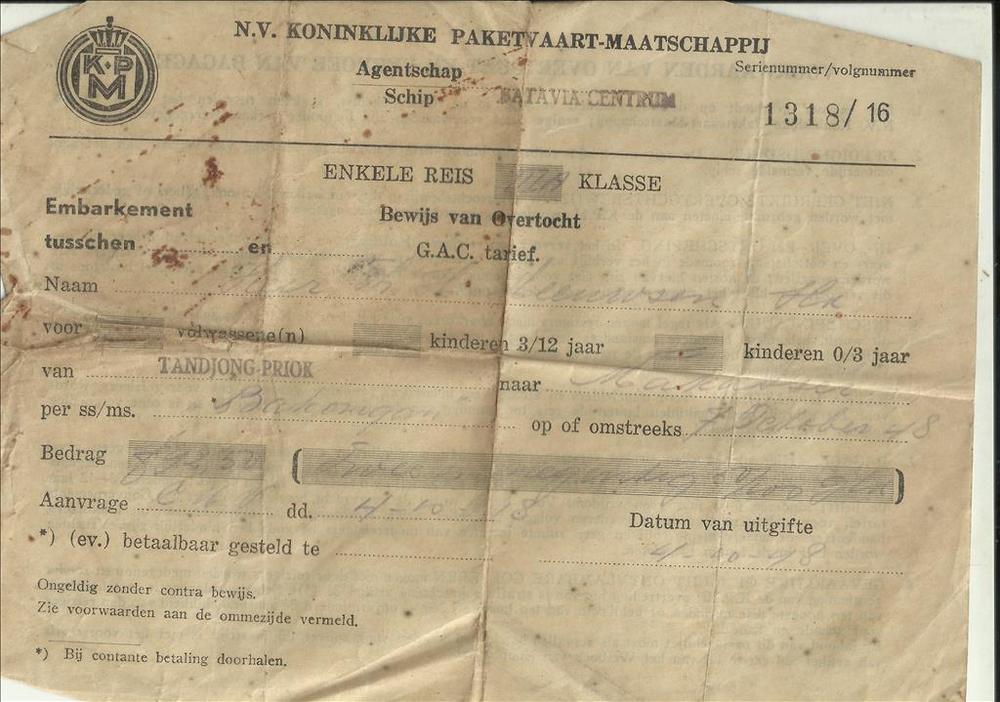 N.V. KONINKLIJKE PAKETVAART-MAATSCHAPPIJ
K.P.M
Agentschap
Schip BATAVIA CENTRUM
Serienummer/volgnummer
1318/ 16
ENKELE REIS KLASSE
Embarkement
Bewijs van Overtocht
tusschen en
G.A.C. tarief.
Naam
voor volwassene(n) kinderen 3/12 jaar kinderen 0/3 jaar
van TANDJONG-PRIOK naar Makasser
per ss/ms. "Bakongan" op of omstreeks 7 October 48
Bedrag
Aanvrage dd. 4-10 48
Datum van uitgifte
*) (ev.) betaalbaar gesteld te
4-10-48
Ongeldig zonder contra bewijs.
Zie voorwaarden aan de ommezijde vermeld.
*) Bij contante betaling doorhalen.